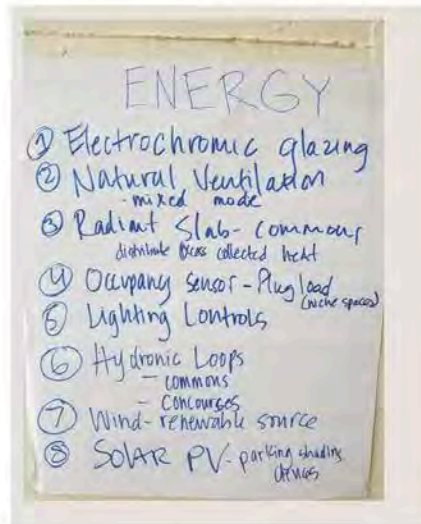 ENERGY
① Electrochromic glazing
② Natural Ventilation
- mixed mode
③ Radiant Slab - commons
distribute excess collected heat
④ Occupany sensor - Plug load
(niche spaces)
⑤ Lighting Controls
⑥ Hydronic Loops
- commons
- Concourses
⑦ Wind - renewable source
⑧ SOLAR PV - parking shading
devices